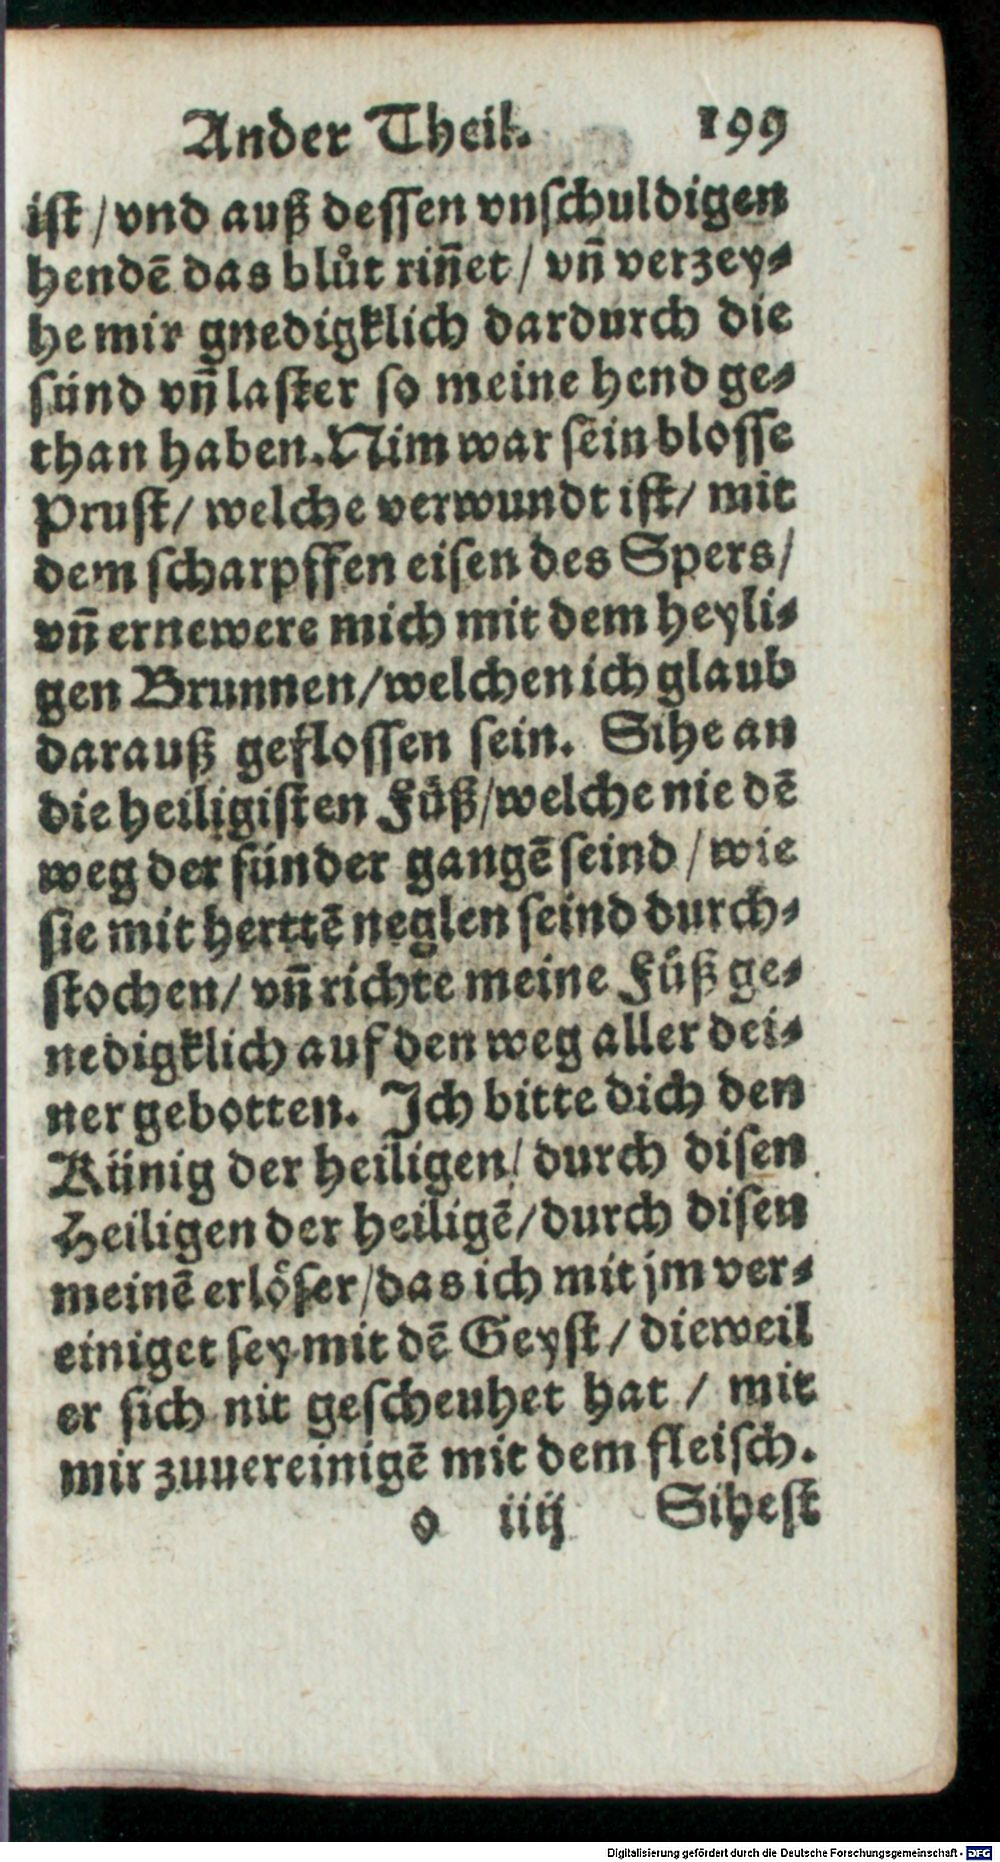 Ander Theil. 199
ist / vnd auß dessen vnschuldigen
hendē das blůt rin̄et / vn̄ verzey-
he mir gnedigklich dardurch die
sünd vn̄ laster so meine hend ge-
than haben. Nim war sein blosse
Prust / welche verwundt ist / mit
dem scharpffen eisen des Spers /
vn̄ ernewere mich mit dem heyli-
gen Brunnen / welchen ich glaub
darauß geflossen sein. Sihe an
die heiligisten Füß / welche nie dē
weg der sünder gangē seind / wie
sie mit herttē neglen seind durch-
stochen / vn̄ richte meine Füß ge-
nedigklich auf den weg aller dei-
ner gebotten. Ich bitte dich den
Künig der heiligen / durch disen
Heiligen der heiligē / durch disen
meinē erlöser / das ich mit jm ver-
einiget sey mit dē Geyst / dieweil
er sich nit gescheuhet hat / mit
mir zuuereinigē mit dem fleisch.
o iiij Sihest
Digitalisierung gefördert durch die Deutsche Forschungsgemeinschaft - DFG